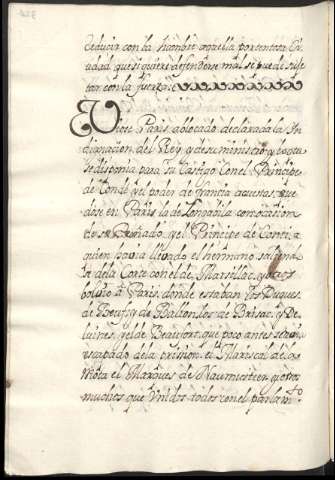 reducir con la hambre aquella portentosa Ci
udad que si quiere defenderse mal se puede suje
tar con la fuerza
Viose Paris ablocado declarada la In
dignacion del Rey y de su ministro y que ya
se disponia para su Castigo Con el Principe
de Conde y el poder de francia a cuestas, que
dose en Paris la de Longavila con ocasion
de su preñado, y el Principe de Conti, a
quien havia llevado el hermano
de la Corte con el de Marsillac, y otros
bolvio a Paris donde estaban los Duques
de Beufort de Bullon, los de Brisac, y De
luines, y el de Beaufort, que poco antes se havia
escapado de la prision, el Mariscal de la
Mota el Marques de Naumestier, y otros
muchos que Unidos todos con el parlamto